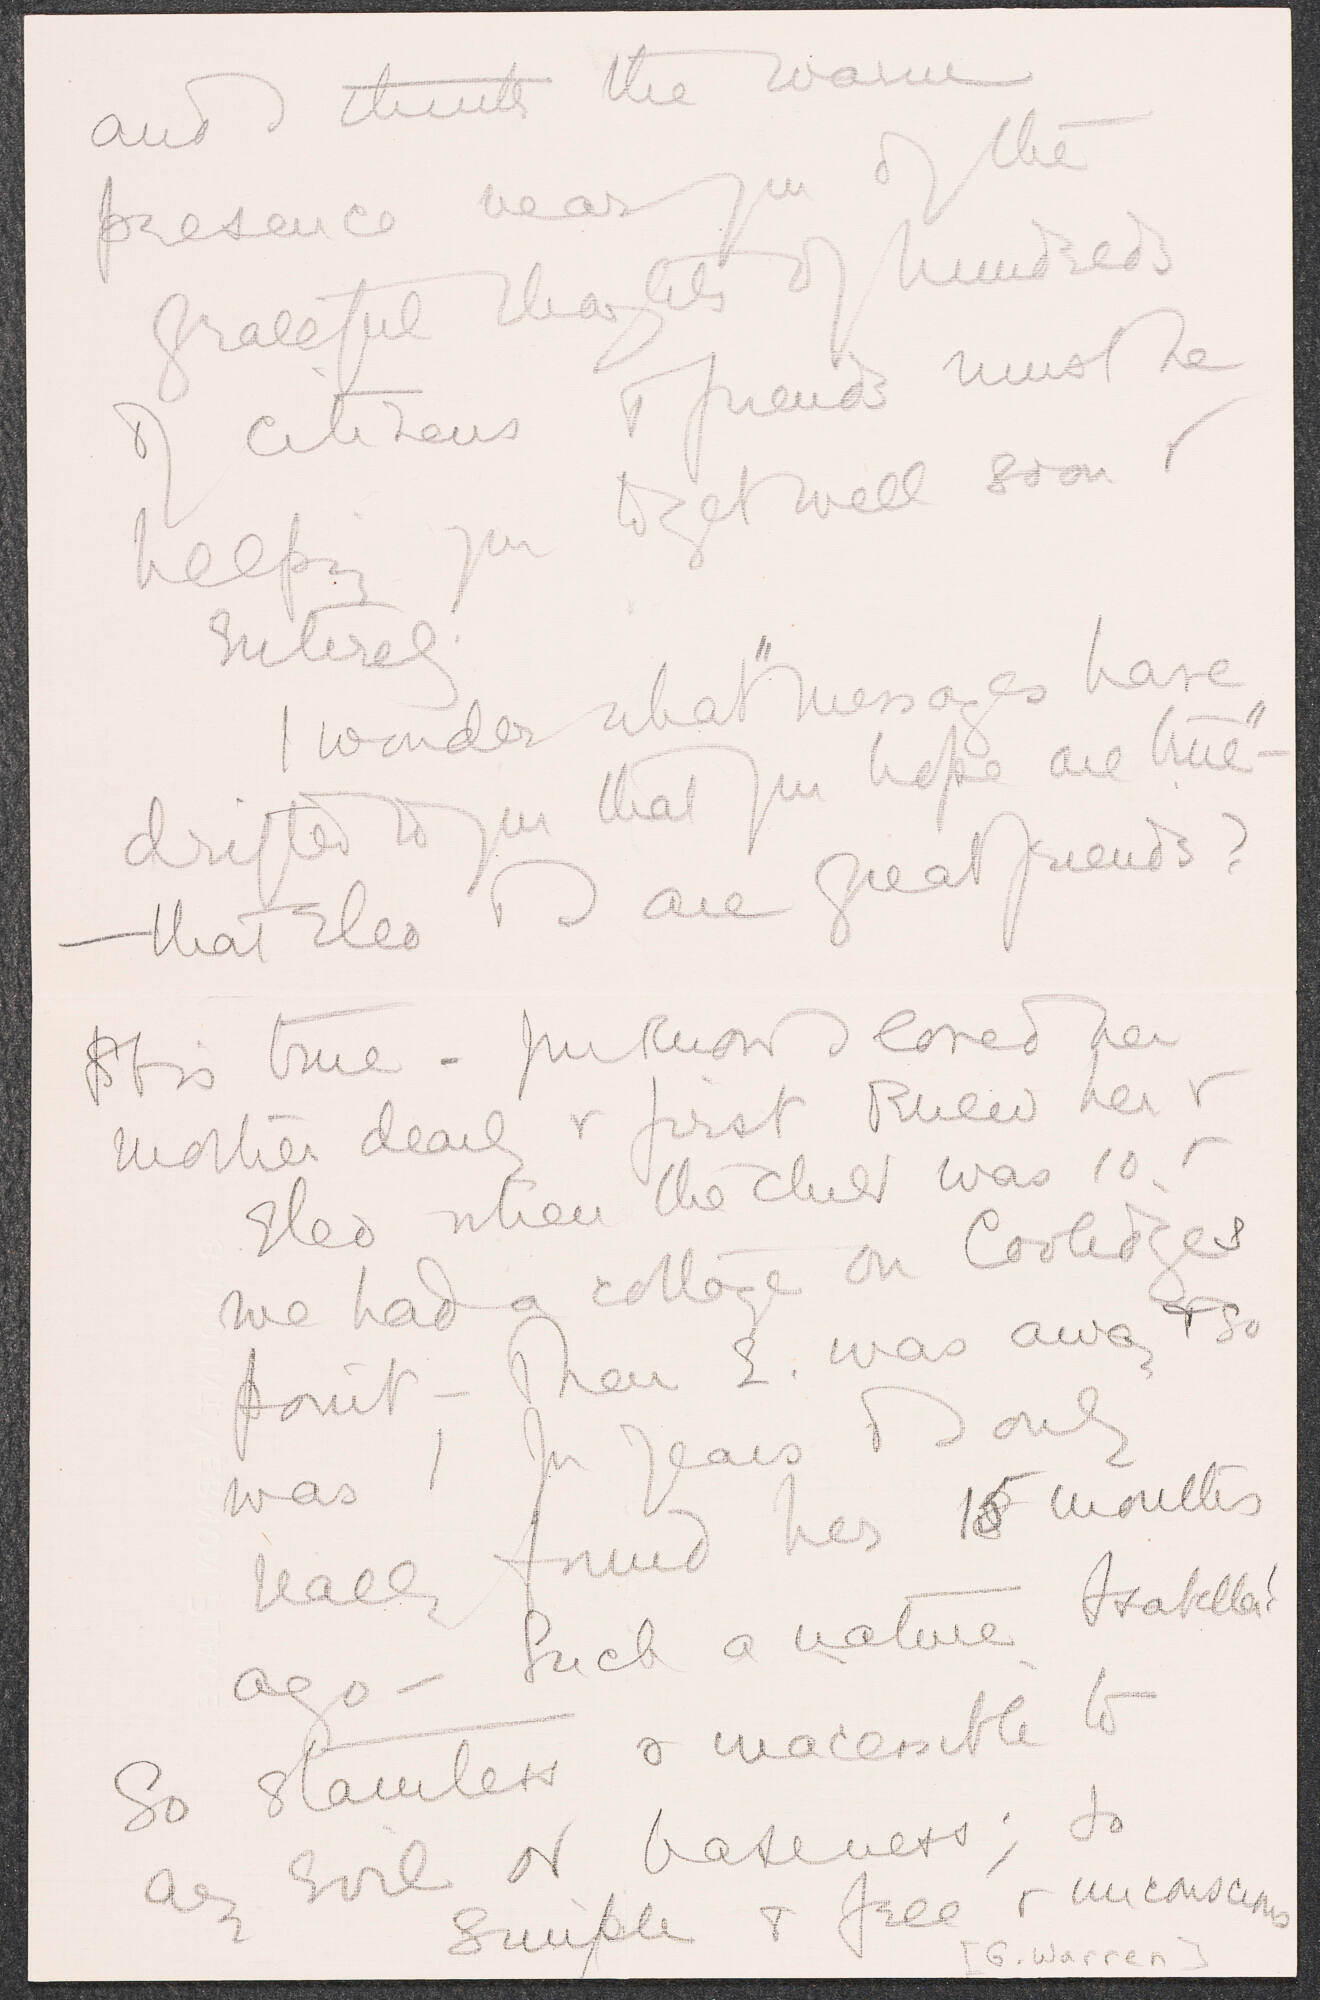 and I think the warm
presence near you of the
grateful thoughts of hundreds
of citizens & friends must be
helping you to get well soon &
entirely.
I wonder what "messages have
drifted to you that you hope are true" –
– that Eleo & I are great friends?
It is true – you know I loved her
mother dearly & first knew her &
Eleo when the child was 10. &
we had a cottage on Coolidges
point – Then E. was away & so
was I for years & I only
really found her 15 months
ago – Such a nature Isabella!
So stainless & inacessible to
any evil or baseness; so
simple & free & unconscious
[G. Warren]